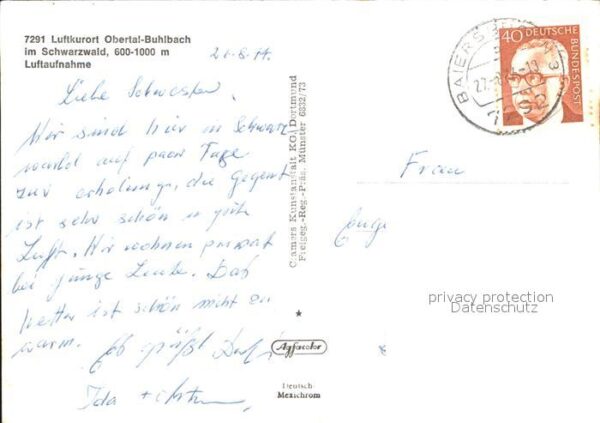 7291 Luftkurort Obertal-Buhlbach
im Schwarzwald, 600-1000 m
Luftaufnahme
26.8.74.
Liebe Schwester,
Wir sind hier in Schwarz
wald auf paar Tage
zur erholung, die Gegent
ist sehr schön u gute
Luft. Wir wohnen privat
bei junge Leute. Das
Wetter ist schön nicht zu
warm. Es grüßt Dich
Ida +
Cramers Kunstanstalt KG., Dortmund
Freigeg.-Reg.-Präs. Münster 6832/73
Agfacolor
Deutsch
Mexichrom
BAIERSBRONN
40 DEUTSCHE BUNDESPOST
Frau
privacy protection
Datenschutz